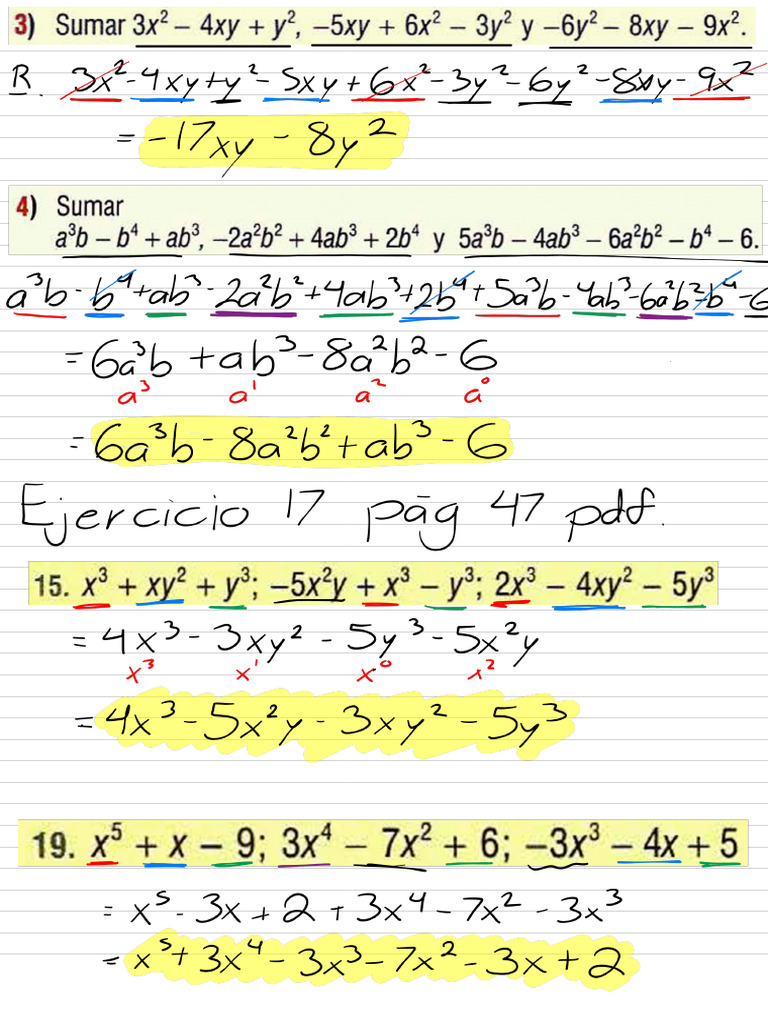 3) Sumar 3x² – 4xy + y², –5xy + 6x² – 3y² y –6y² – 8xy – 9x².
R. 3x² - 4xy + y² - 5xy + 6x² - 3y² - 6y² - 8xy - 9x²
= -17xy - 8y²
4) Sumar
a³b – b⁴ + ab³, –2a²b² + 4ab³ + 2b⁴ y 5a³b – 4ab³ – 6a²b² – b⁴ – 6.
a³b - b⁴ + ab³ - 2a²b² + 4ab³ + 2b⁴ + 5a³b - 4ab³ - 6a²b² - b⁴ - 6
= 6a³b + ab³ - 8a²b² - 6
a³ a¹ a² a⁰
= 6a³b - 8a²b² + ab³ - 6
Ejercicio 17 pág 47 pdf.
15. x³ + xy² + y³; –5x²y + x³ – y³; 2x³ – 4xy² – 5y³
= 4x³ - 3xy² - 5y³ - 5x²y
x³ x¹ x⁰ x²
= 4x³ - 5x²y - 3xy² - 5y³
19. x⁵ + x – 9; 3x⁴ – 7x² + 6; –3x³ – 4x + 5
= x⁵ - 3x + 2 + 3x⁴ - 7x² - 3x³
= x⁵ + 3x⁴ - 3x³ - 7x² - 3x + 2